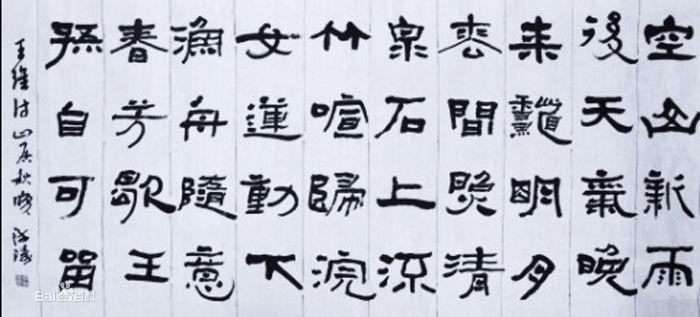 空山新雨
後天氣晚
来龝明月
枩間照清
泉石上流
竹喧歸浣
女蓮動下
漁舟隨意
春芳歇王
孫自可留
王維诗山居秋暝
Bai百科